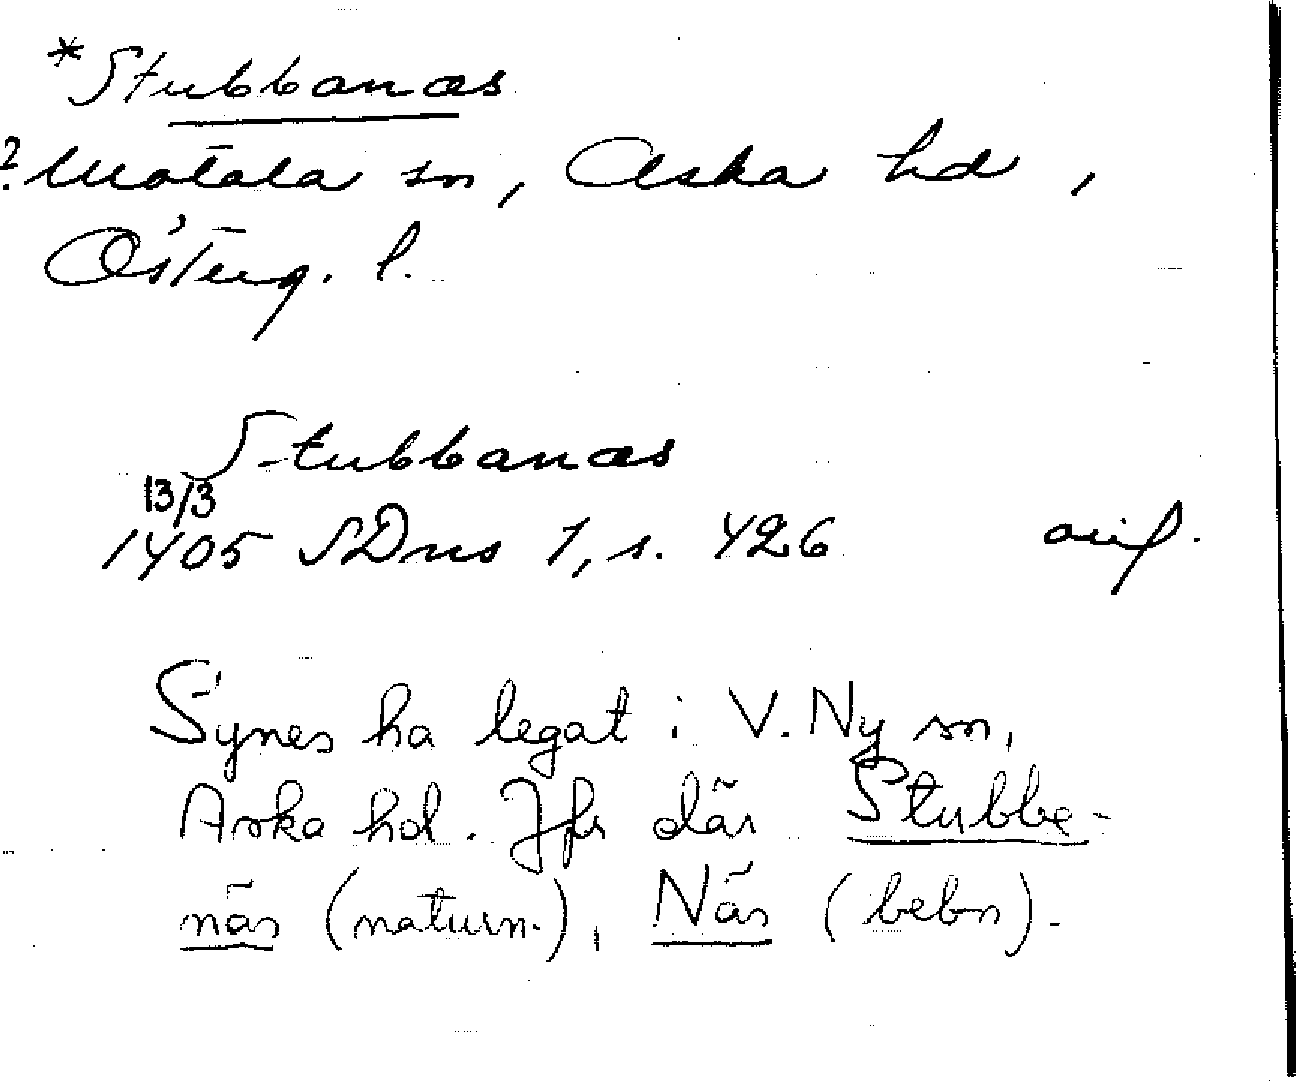 *Stubbanæs
? Motala sn, Aska hd,
Österg. l.
Stubbanæs
13/3
1405 SDns 1, s. 426 avif.
Synes ha legat i V. Ny sn,
Aska hd. Jfr där Stubbe-
näs (naturn.), Näs (bebn).